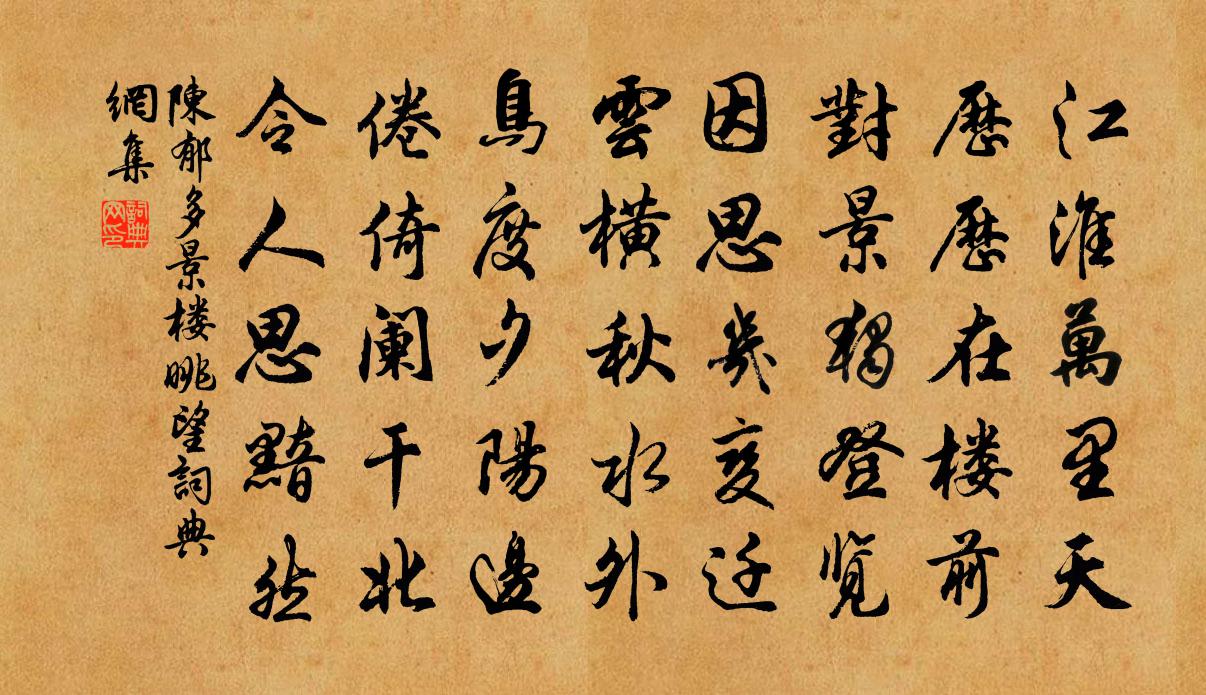 江淮萬里天
歷歷在楼前
對景獨登覽
因思幾变迁
雲橫秋水外
鳥度夕陽邊
倦倚阑干北
令人思黯然
陳郁多景楼眺望詞典
網集
詞典
网印